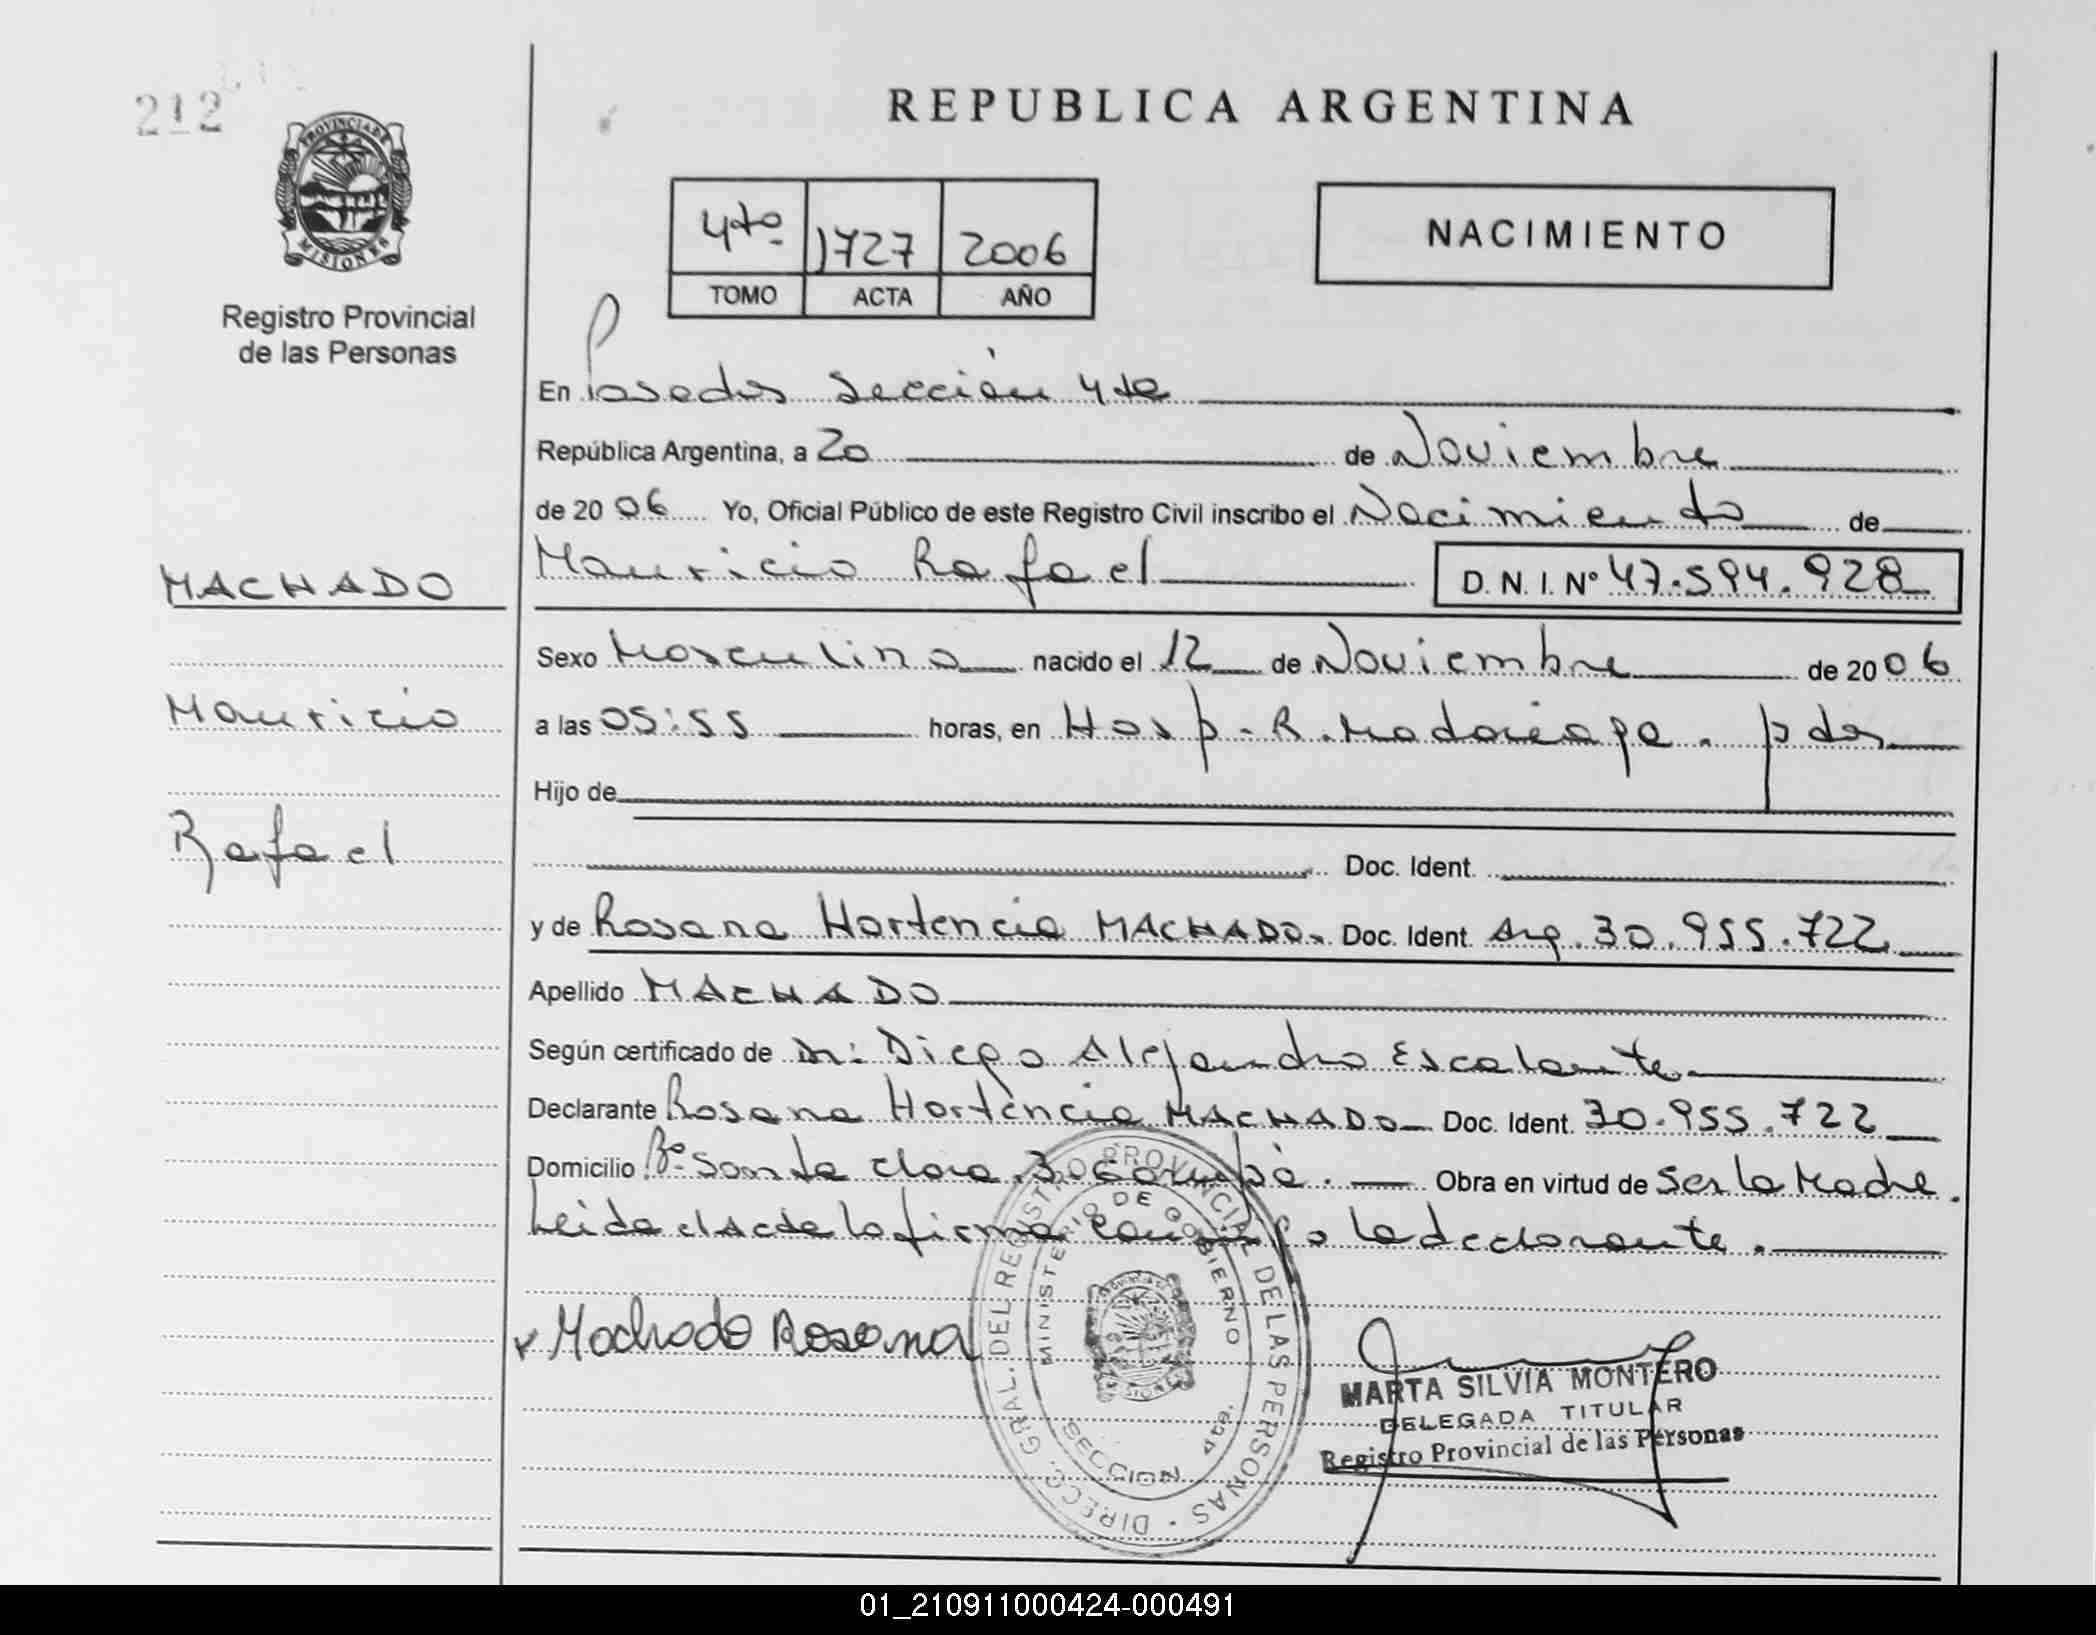 212
PROVINCIA DE
MISIONES
Registro Provincial
de las Personas
REPUBLICA ARGENTINA
4to 1727 2006
TOMO ACTA AÑO
NACIMIENTO
En Posadas Sección 4ta
República Argentina, a 20 de Noviembre
de 2006 Yo, Oficial Público de este Registro Civil inscribo el Nacimiento de
Mauricio Rafael D.N.I. Nº 47.594.928
MACHADO
Mauricio
Rafael
Sexo Masculino nacido el 12 de Noviembre de 2006
a las 05:55 horas, en Hosp. R. Madariaga. pdas
Hijo de
Doc. Ident.
y de Rosana Hortencia MACHADO. Doc. Ident. Arg. 30.955.722
Apellido MACHADO
Según certificado de Dr: Diego Alejandro Escalante
Declarante Rosana Hortencia MACHADO Doc. Ident. 30.955.722
Domicilio Bº Santa Clara 3. Garupá. Obra en virtud de Ser la Madre.
Leida el Acta la firma conmigo la declarante.
x Machado Rosana
DIRECC. GRAL. DEL REGISTRO PROVINCIAL DE LAS PERSONAS
MINISTERIO DE GOBIERNO
SECCION 4ta.
MARTA SILVIA MONTERO
DELEGADA TITULAR
Registro Provincial de las Personas
01_210911000424-000491